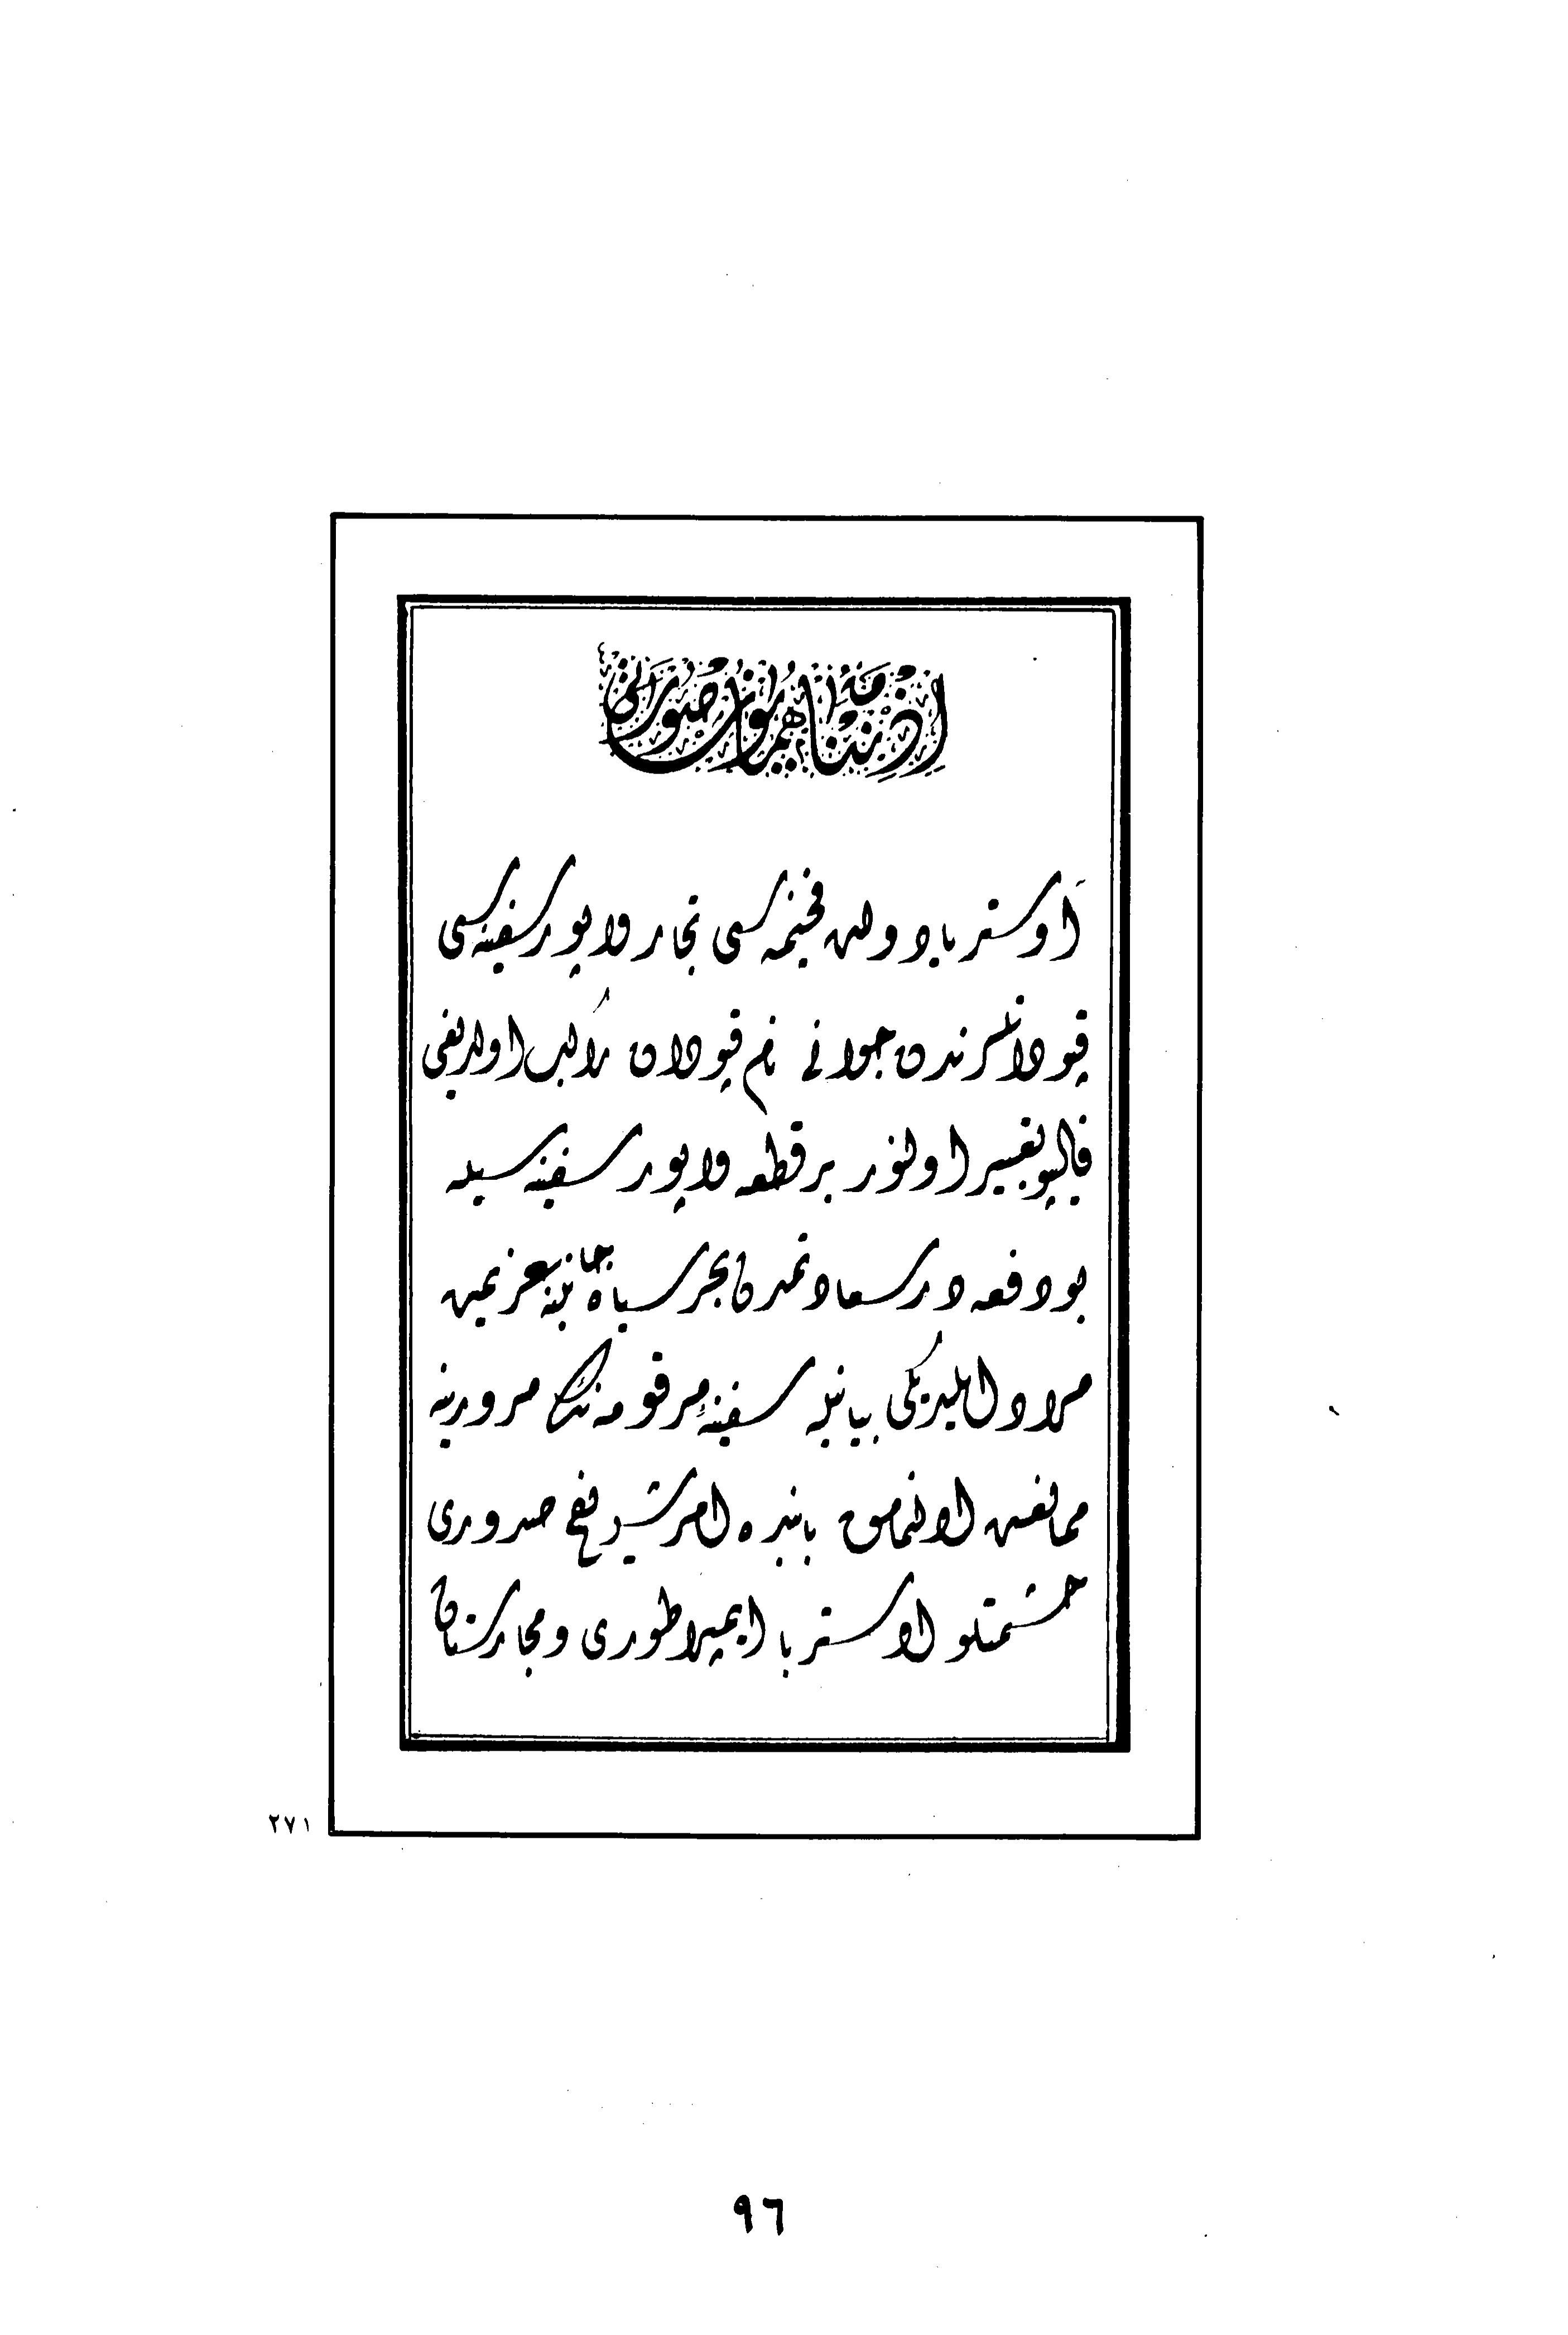 اذننامۀ همایون صورتی
اوستریا دولت فخیمه سی تجار واپور سفینه سی
قپودانلرندن جوانی نام قپودان راکب اولدیغی
قالیپو تعبیر اولنور بر قطعه واپور سفینه سیله
بو دفعه درسعادتمدن بحر سیاه جانبنه عزیمت
مراد ایلدیکی بیانیله سفینۀ مرقومه نك مرورینه
ممانعت اولنمامق بابنده امر شریفم صدوری
حشمتلو اوستریا ایمپراطوری ومجارستان
٢٧١
٩٦